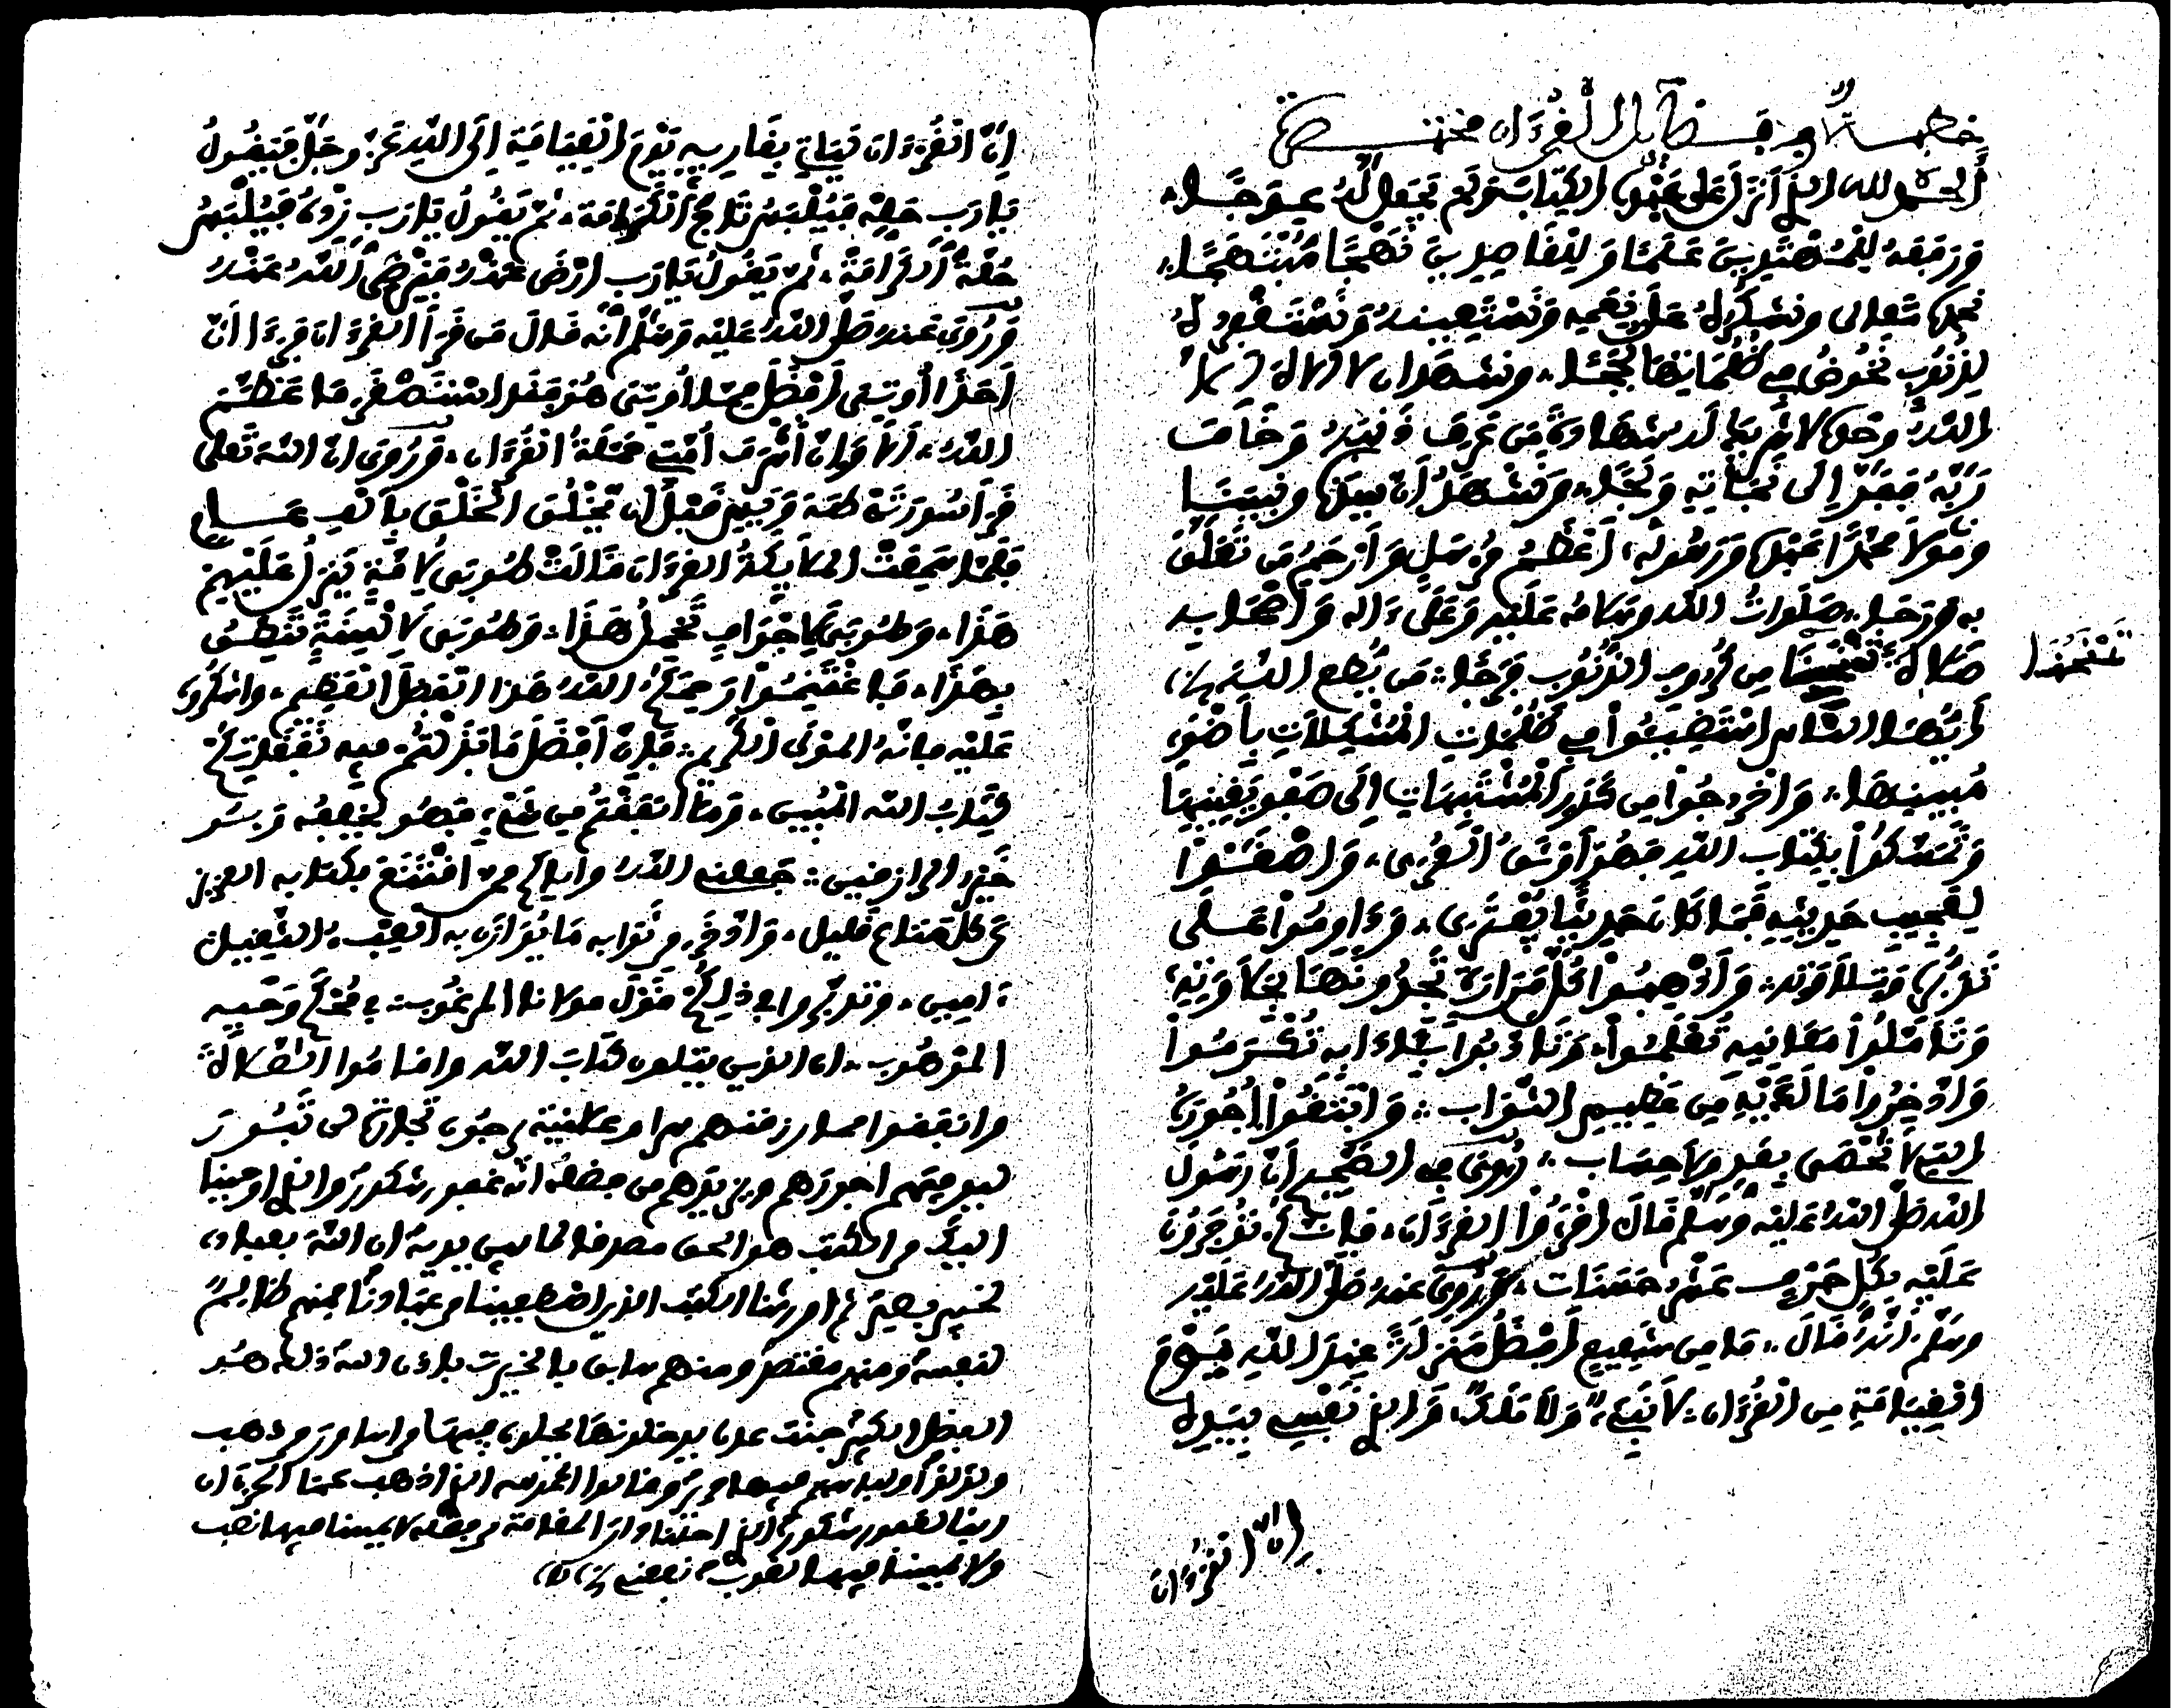 خطبة في فضائل القرءان مختصرة
الحمد لله الذي أنزل على عبده الكتاب ولم يجعل له عوجا،
ورفعه للمهتدين علما وللقاصدين نهجا منتهجا،
نحمده تعالى ونشكره على نعمه ونستعينه ونستغفره
لذنوب نخوض في ظلماتها لججا، ونشهد ان لا اله الا
الله وحده لا شريك له شهادة من عرف ذنبه وخاف
ربه ففر إلى نجاته ولجا، ونشهد أن سيدنا ونبينا
ومولانا محمدا عبده ورسوله، أعظم مرسل وأرحم من تعلق
به ورجا، صلوات الله وسلامه عليه وعلى ءاله وأصحابه
صلاة تمنحنا من كروب الذنوب فرجا، من يطع الله
تمنحنا
أيها الناس استضيئوا في ظلمات المشكلات بأضواء
مبينها، واخرجوا من كدر المشتبهات إلى صفو يقينها
وتمسكوا بكتاب الله فهو أوثق العرى، واصغوا
لعجيب حديثه فما كان حديثا يفترى، وداوموا على
تدبره وتلاوته، وأدهبوا كل مرارة تجدونها بحلاوته،
وتأملوا معانيه تغنموا، وتأدبوا بآدابه تكرموا
وادخروا ما لديه من عظيم الثواب، وابتغوا أجوره
التي لا تحصى بعد ولا حساب، روي في الصحيح أن رسول
الله صلى الله عليه وسلم قال اقرءوا القرءان، فإنكم تؤجرون
عليه بكل حرف عشر حسنات، وروي عنه صلى الله عليه
وسلم أنه قال، ما من شفيع أفضل منزلة عند الله يوم
القيامة من القرءان، لا نبي، ولا ملك، والذي نفسي بيده
إن القرءان
إن القرءان ليأتي بقاريه يوم القيامة إلى الله عز وجل فيقول
يا رب حله فيلبس تاج الكرامة، ثم يقول يا رب زده فيلبس
حلة الكرامة، ثم يقول يا رب ارض عنه فيرضى الله عنه
وروي عنه صلى الله عليه وسلم أنه قال من قرأ القرءان فرءا أن
أحدا أوتي أفضل مما أوتي هو فقد استصغر ما عظم
الله، ألا وإن أشرف أمتي حملة القرءان، وروي ان الله تعلى
قرأ سورة طه ويس قبل أن يخلق الخلق بألف عام
فلما سمعت الملايكة القرءان قالت طوبى لأمة ينزل عليهم
هذا، وطوبى لأجواف تحمل هذا، وطوبى لألسنة تنطق
بهذا، فاغتنموا رحمكم الله هذا الفضل العظيم، واشكروا
عليه فانه المولى الكريم، فإن أفضل ما بذلتم فيه نفقاتكم
كتاب الله المبين، وما أنفقتم من شيء فهو يخلفه وهو
خير الرازقين، جعلني الله وإياكم ممن اقتنع بكتابه العزيز
عن كل متاع قليل، وادخر من ثوابه ما يوازن به العبء الثقيل
ءامين، وتدبروا في ذلكم قول مولانا المرغوب، في محكم وحيه
الموهوب، ان الذين يتلون كتاب الله واقاموا الصلاة
وانفقوا مما رزقنهم سرا وعلانية يرجون تجارة لن تبور
ليوفيهم اجورهم ويزيدهم من فضله انه غفور شكور والذي أوحينا
اليك من الكتب هو الحق مصدقا لما بين يديه ان الله بعباده
لخبير بصير ثم اورثنا الكتب الذين اصطفينا من عبادنا فمنهم ظالم
لنفسه ومنهم مقتصد ومنهم سابق بالخيرت باذن الله ذلك هو
الفضل الكبير جنت عدن يدخلونها يحلون فيها من اساور من ذهب
ولؤلؤا ولباسهم فيها حرير وقالوا الحمد لله الذي أذهب عنا الحزن ان
ربنا لغفور شكور الذي احلنا دار المقامة من فضله لا يمسنا فيها نصب
ولا يمسنا فيها لغوب نفعني